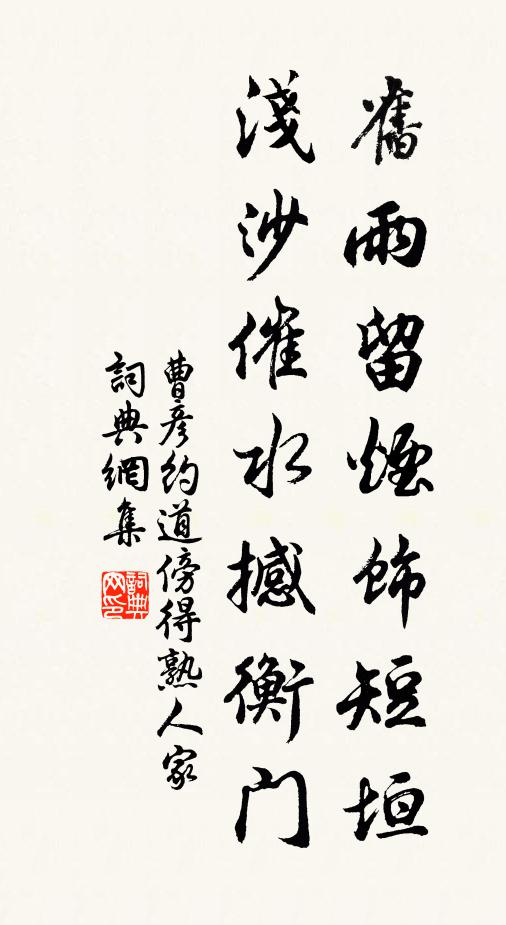 舊雨留煙飾短垣
淺沙催水撼衡門
曹彥約道傍得熟人家
詞典網集
詞典网印